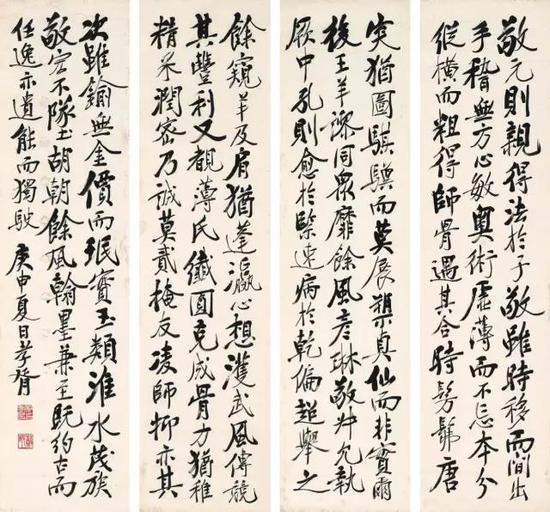 敬元則親得法於子敬雖時移而間出
手稽無方心敏奧術雖薄而不忘本分
縱橫而粗得師骨遇其合時髣髴唐
突猶圖騏驥而莫展塑真仙而非實爾
後王羊謬同衆靡餘風彥琳敬叔允執
厥中孔則愈於緊速病於乾偏超舉之
餘窺羊及肩猶蓬瀛心想濩武風傳競
其豐利又覩薄氏纖圓克成骨力猶稚
精采潤密乃誠莫貳掩友凌師抑亦其
次雖鍮無金價而珉實玉類淮水茂族
敬宏不隊玉胡朝餘風翰墨兼至既約古而
任逸亦遺能而獨駛 庚申夏日孝胥